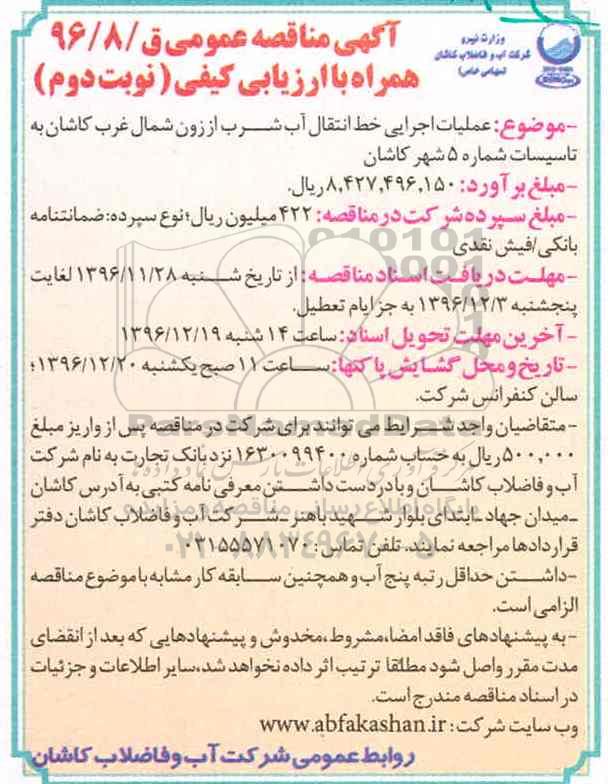 وزارت نیرو
شرکت آب و فاضلاب کاشان
(سهامی خاص)
آگهی مناقصه عمومی ق/۹۶/۸
همراه با ارزیابی کیفی (نوبت دوم)
-موضوع: عملیات اجرایی خط انتقال آب شرب از زون شمال غرب کاشان به
تاسیسات شماره ۵ شهر کاشان
-مبلغ برآورد: ۸,۴۲۷,۴۹۶,۱۵۰ ریال.
-مبلغ سپرده شرکت در مناقصه: ۴۲۲ میلیون ریال؛ نوع سپرده: ضمانتنامه
بانکی/فیش نقدی
-مهلت دریافت اسناد مناقصه: از تاریخ شنبه ۱۳۹۶/۱۱/۲۸ لغایت
پنجشنبه ۱۳۹۶/۱۲/۳ به جز ایام تعطیل.
-آخرین مهلت تحویل اسناد: ساعت ۱۴ شنبه ۱۳۹۶/۱۲/۱۹
-تاریخ و محل گشایش پاکتها: ساعت ۱۱ صبح یکشنبه ۱۳۹۶/۱۲/۲۰؛
سالن کنفرانس شرکت.
-متقاضیان واجد شرایط می توانند برای شرکت در مناقصه پس از واریز مبلغ
۵۰۰,۰۰۰ ریال به حساب شماره ۱۶۳۰۰۹۹۴۰۰ نزد بانک تجارت به نام شرکت
آب و فاضلاب کاشان و با در دست داشتن معرفی نامه کتبی به آدرس کاشان
-میدان جهاد -ابتدای بلوار شهید باهنر -شرکت آب و فاضلاب کاشان دفتر
قراردادها مراجعه نمایند. تلفن تماس: ۰۳۱۵۵۵۷۱۰۷۰
-داشتن حداقل رتبه پنج آب و همچنین سابقه کار مشابه با موضوع مناقصه
الزامی است.
-به پیشنهادهای فاقد امضا، مشروط، مخدوش و پیشنهادهایی که بعد از انقضای
مدت مقرر واصل شود مطلقا ترتیب اثر داده نخواهد شد، سایر اطلاعات و جزئیات
در اسناد مناقصه مندرج است.
وب سایت شرکت: www.abfakashan.ir
روابط عمومی شرکت آب و فاضلاب کاشان
ParsNamadData
پایگاه اطلاع رسانی مناقصه و مزایده
۰۲۱-۸۸۳۴۹۶۷۰-۵